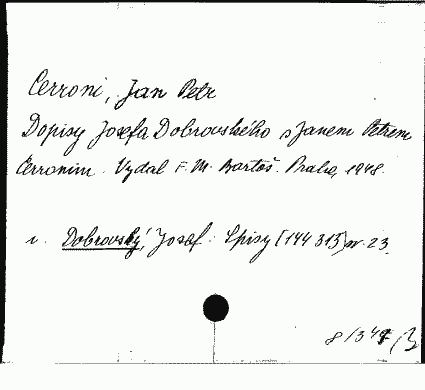 Cerroni, Jan Petr
Dopisy Josefa Dobrovského s Janem Petrem
Cerronim. Vydal F. M. Bartoš. Praha, 1948.
v. Dobrovský, Josef: Spisy [144 315] sv. 23.